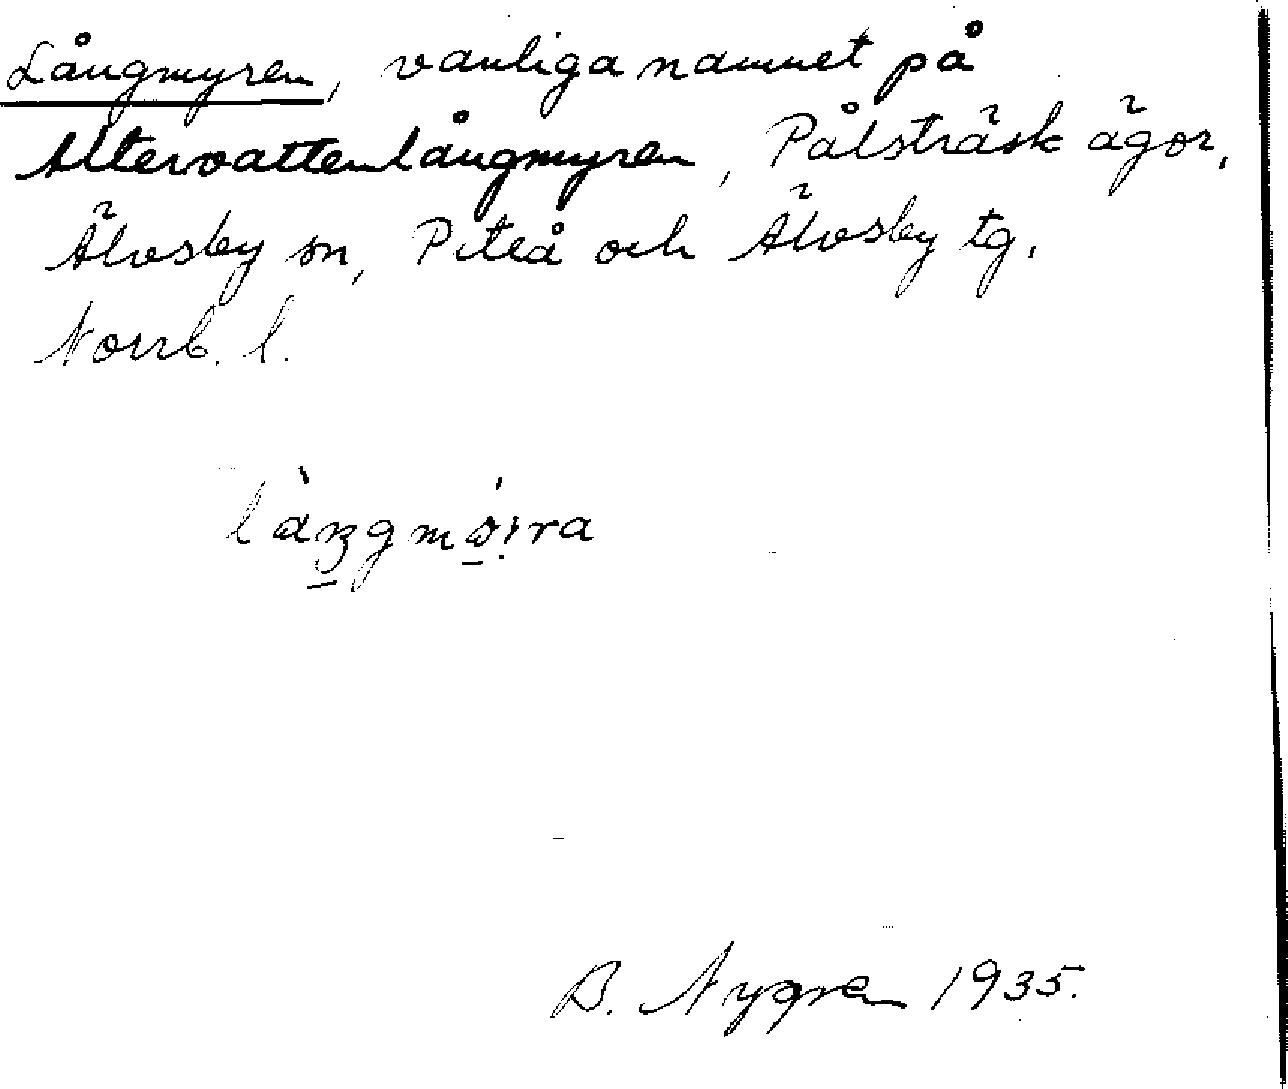 Långmyren, vanliga namnet på
Altervattenlångmyren, Pålsträsk ägor,
Älvsby sn, Piteå och Älvsby tg.
Norrb. l.
B. Nygren 1935.